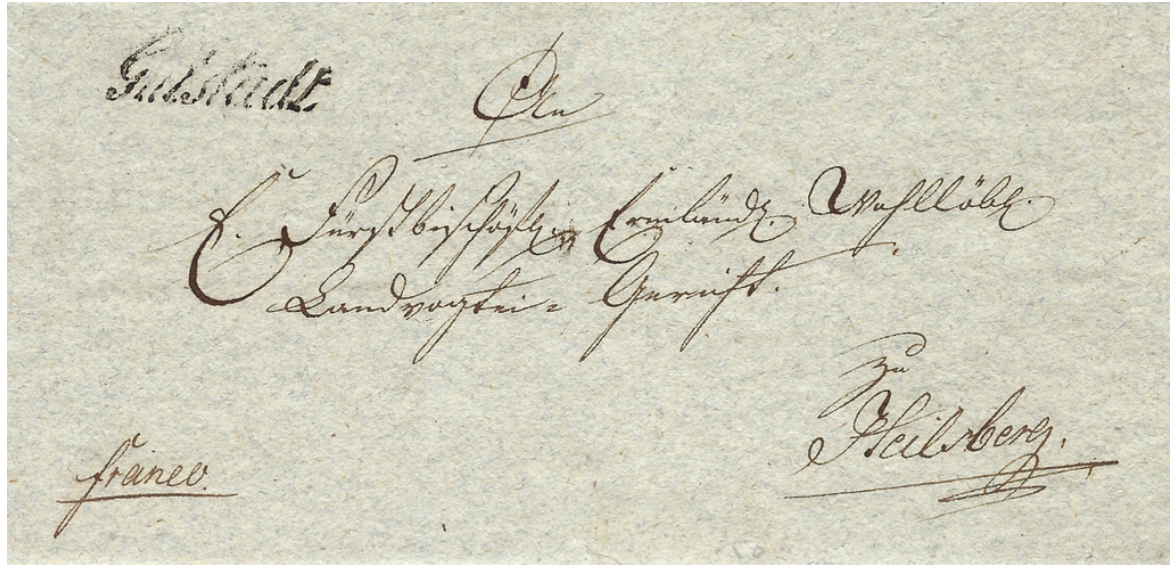 Gutstadt
An
E. Fürstbischöfl. Ermländ. Wohllöbl.
Landvogtei= Gericht.
zu
Heilsberg.
franco.